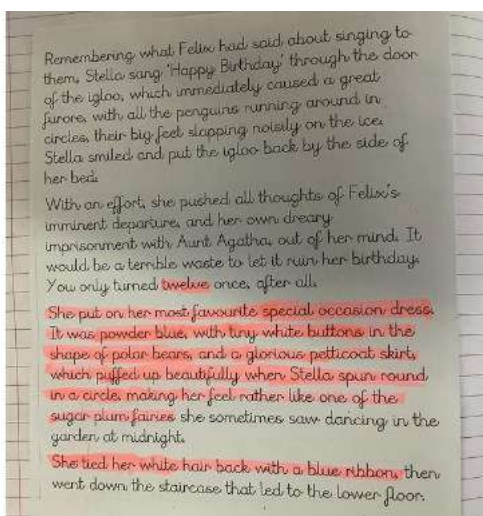 Remembering what Felix had said about singing to
them, Stella sang 'Happy Birthday' through the door
of the igloo, which immediately caused a great
furore, with all the penguins running around in
circles, their big feet slapping noisily on the ice.
Stella smiled and put the igloo back by the side of
her bed.
With an effort, she pushed all thoughts of Felix's
imminent departure, and her own dreary
imprisonment with Aunt Agatha, out of her mind. It
would be a terrible waste to let it ruin her birthday.
You only turned twelve once, after all.
She put on her most favourite special occasion dress.
It was powder blue, with tiny white buttons in the
shape of polar bears, and a glorious petticoat skirt,
which puffed up beautifully when Stella spun round
in a circle, making her feel rather like one of the
sugar plum fairies she sometimes saw dancing in the
garden at midnight.
She tied her white hair back with a blue ribbon, then
went down the staircase that led to the lower floor.